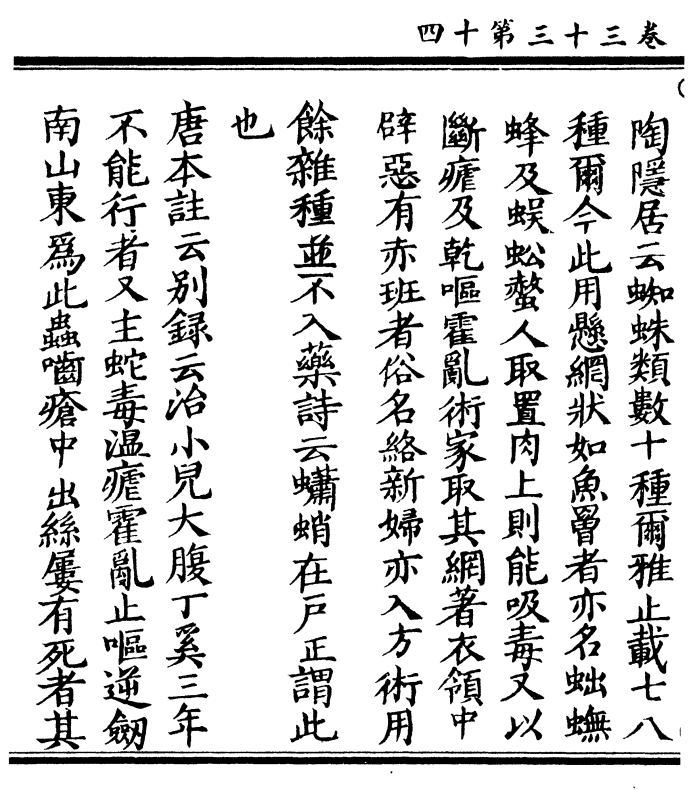 卷三十三第十四
陶隱居云蜘蛛類數十種爾雅止載七八
種爾今此用懸網狀如魚罾者亦名蚍蟱
蜂及蜈蚣螫人取置肉上則能吸毒又以
斷瘧及乾嘔霍亂術家取其網著衣領中
辟惡有赤班者俗名絡新婦亦入方術用
餘雜種並不入藥詩云蠨蛸在戶正謂此
也
唐本註云別録云治小兒大腹丁奚三年
不能行者又主蛇毒温瘧霍亂止嘔逆劒
南山東爲此蟲嚙瘡中出絲屢有死者其